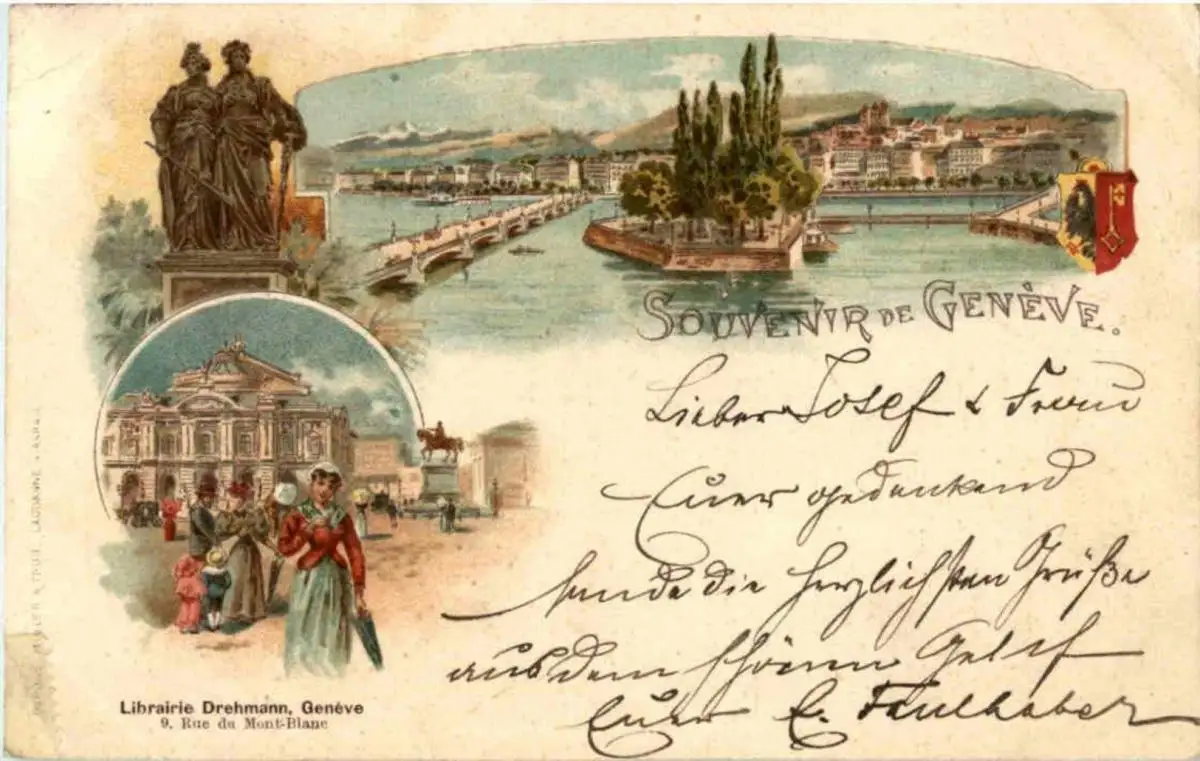 SOUVENIR DE GENÈVE.
Lieber Josef & Frau
Euer gedenkend
sende die herzlichsten Grüße
aus dem schönen
Euer E. Faulhaber
Librairie Drehmann, Genève
9. Rue du Mont-Blanc